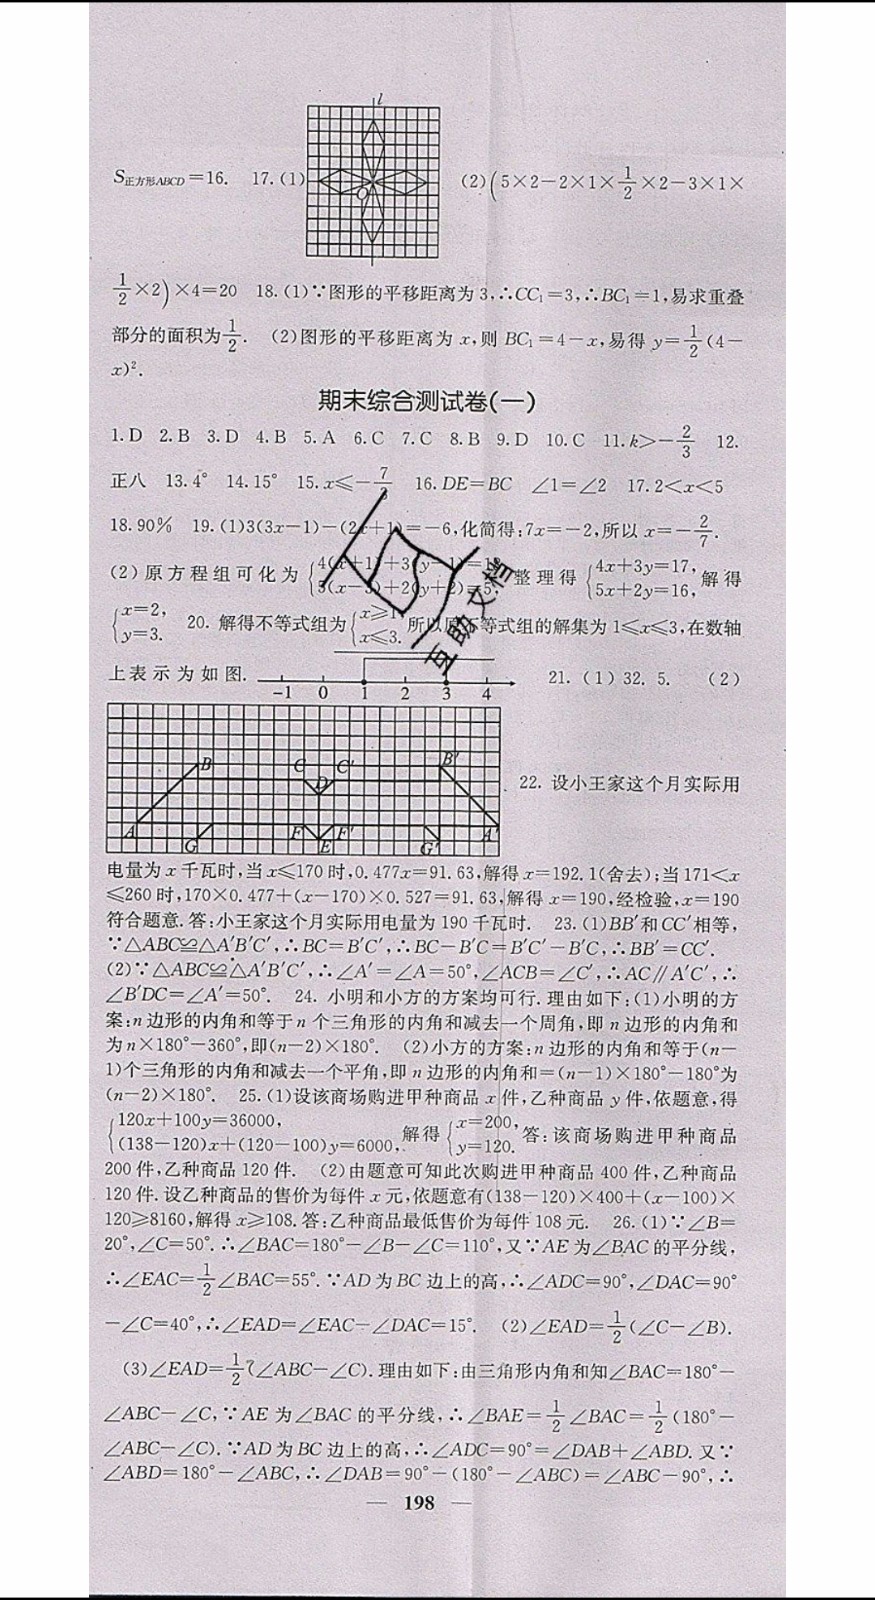 l
S正方形ABCD=16. 17.(1) O (2)(5×2-2×1×1/2×2-3×1×
1/2×2)×4=20 18.(1)∵图形的平移距离为3,∴CC₁=3,∴BC₁=1,易求重叠
部分的面积为1/2. (2)图形的平移距离为x,则BC₁=4-x,易得y=1/2(4-
x)².
期末综合测试卷(一)
1.D 2.B 3.D 4.B 5.A 6.C 7.C 8.B 9.D 10.C 11.k>-2/3 12.
正八 13.4° 14.15° 15.x≤-7/3 16.DE=BC ∠1=∠2 17.2<x<5
18.90% 19.(1)3(3x-1)-(2x+1)=-6,化简得:7x=-2,所以x=-2/7.
(2)原方程组可化为 整理得{4x+3y=17, 5x+2y=16,解得
{x=2, y=3. 20.解得不等式组为{x≥1 x≤3.所以原不等式组的解集为1≤x≤3,在数轴
上表示为如图. -1 0 1 2 3 4 21.(1)32.5. (2)
B C C' B' D
A G F E F' G' A'
22.设小王家这个月实际用
电量为x千瓦时,当x≤170时,0.477x=91.63,解得x=192.1(舍去);当171<x
≤260时,170×0.477+(x-170)×0.527=91.63,解得x=190,经检验,x=190
符合题意.答:小王家这个月实际用电量为190千瓦时. 23.(1)BB'和CC'相等,
∵△ABC≌△A'B'C',∴BC=B'C',∴BC-B'C=B'C'-B'C,∴BB'=CC'.
(2)∵△ABC≌△A'B'C',∴∠A'=∠A=50°,∠ACB=∠C',∴AC∥A'C',∴
∠B'DC=∠A'=50°. 24.小明和小方的方案均可行.理由如下:(1)小明的方
案:n边形的内角和等于n个三角形的内角和减去一个周角,即n边形的内角和
为n×180°-360°,即(n-2)×180°. (2)小方的方案:n边形的内角和等于(n-
1)个三角形的内角和减去一个平角,即n边形的内角和=(n-1)×180°-180°为
(n-2)×180°. 25.(1)设该商场购进甲种商品x件,乙种商品y件,依题意,得
{120x+100y=36000, (138-120)x+(120-100)y=6000,.解得{x=200, y=120.答:该商场购进甲种商品
200件,乙种商品120件. (2)由题意可知此次购进甲种商品400件,乙种商品
120件.设乙种商品的售价为每件x元,依题意有(138-120)×400+(x-100)×
120≥8160,解得x≥108.答:乙种商品最低售价为每件108元. 26.(1)∵∠B=
20°,∠C=50°.∴∠BAC=180°-∠B-∠C=110°,又∵AE为∠BAC的平分线,
∴∠EAC=1/2∠BAC=55°.∵AD为BC边上的高,∴∠ADC=90°,∠DAC=90°
-∠C=40°,∴∠EAD=∠EAC-∠DAC=15°. (2)∠EAD=1/2(∠C-∠B).
(3)∠EAD=1/2(∠ABC-∠C).理由如下:由三角形内角和知∠BAC=180°-
∠ABC-∠C,∵AE为∠BAC的平分线,∴∠BAE=1/2∠BAC=1/2(180°-
∠ABC-∠C).∵AD为BC边上的高,∴∠ADC=90°=∠DAB+∠ABD.又∵
∠ABD=180°-∠ABC,∴∠DAB=90°-(180°-∠ABC)=∠ABC-90°,∴
— 198 —
互助文档